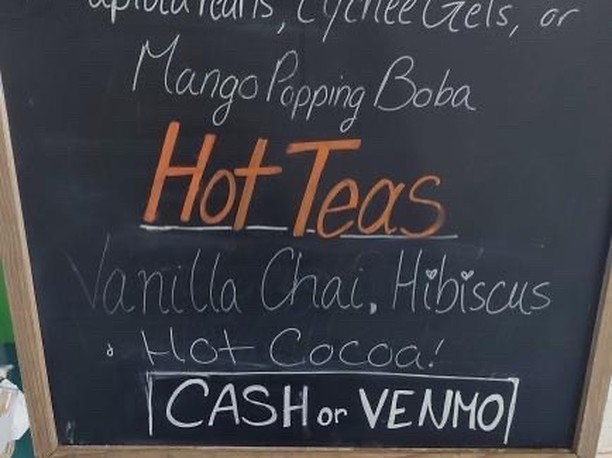 Lychee Gels, or
Mango Popping Boba
Hot Teas
Vanilla Chai, Hibiscus
Hot Cocoa!
CASH or VENMO